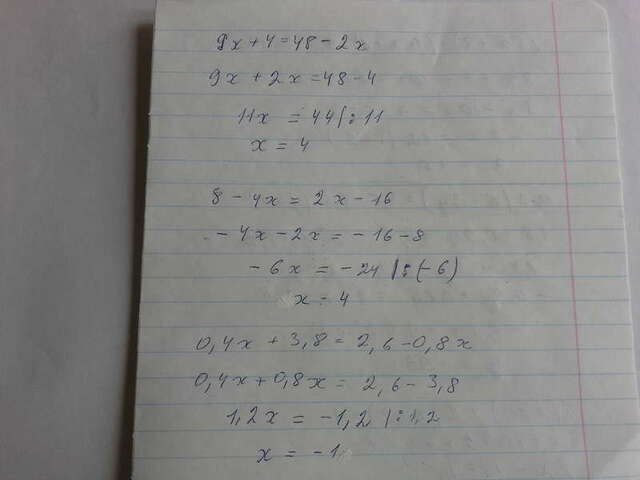 9x + 4 = 48 - 2x
9x + 2x = 48 - 4
11x = 44 | : 11
x = 4
8 - 4x = 2x - 16
- 4x - 2x = - 16 - 8
- 6x = - 24 | : (- 6)
x = 4
0,4x + 3,8 = 2,6 - 0,8x
0,4x + 0,8x = 2,6 - 3,8
1,2x = - 1,2 | : 1,2
x = - 1